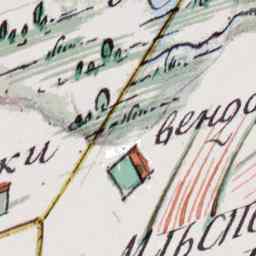 ки
вендо
ильспо